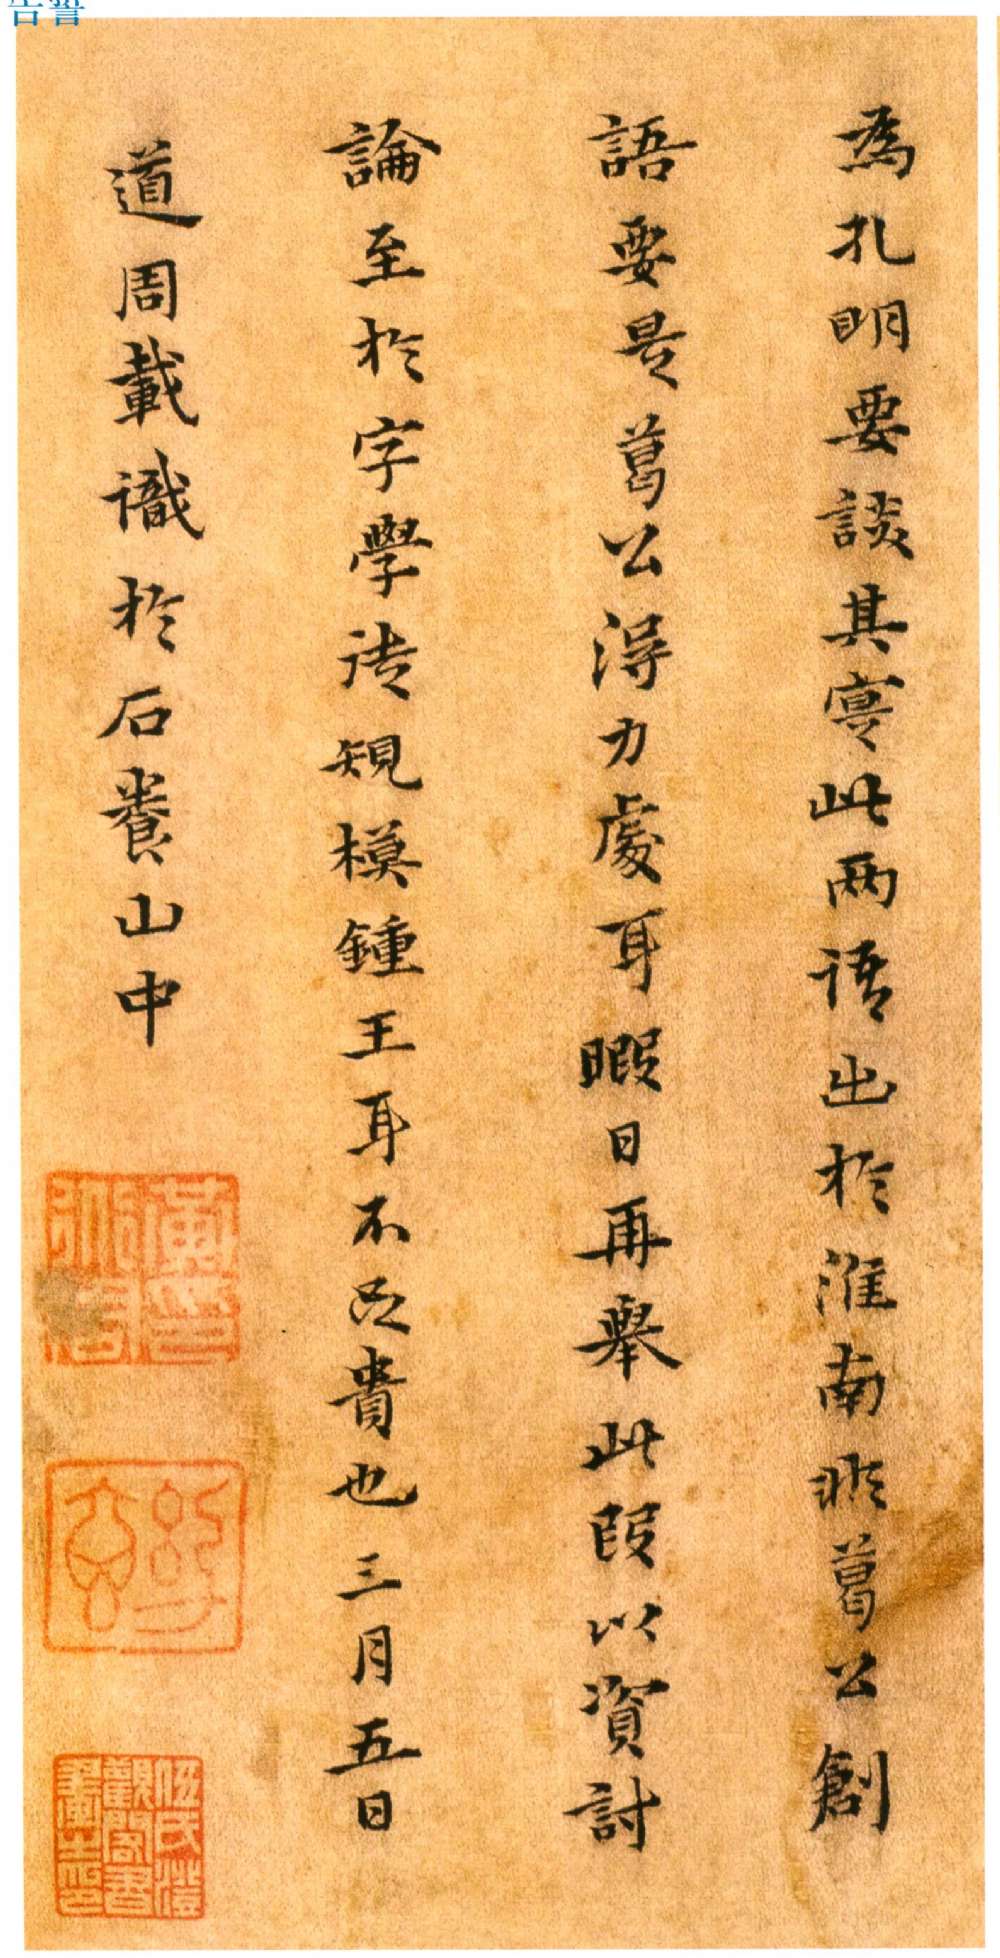 告誓
爲孔明要談其實此兩語出於淮南非葛公創
語要是葛公得力處耳暇日再舉此段以資討
論至於字學法規模鍾王耳不足貴也三月五日
道周載識於石養山中
伍氏澄觀閣書畫之印